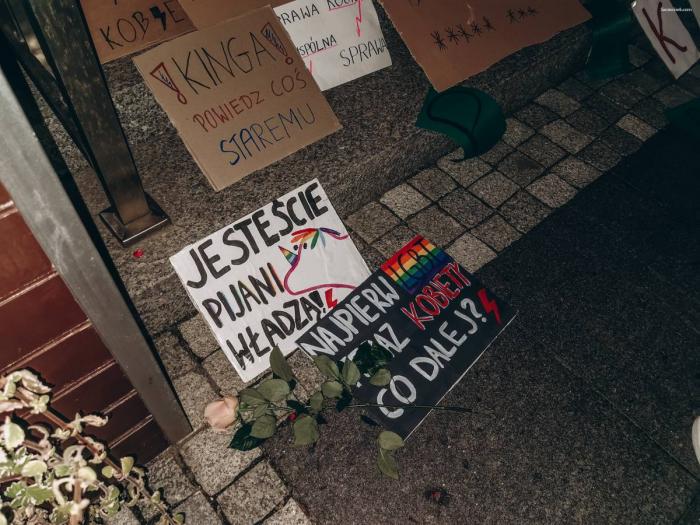 KOBIE
KINGA
POWIEDZ COŚ
STAREMU
SPRAWA KOBIET
WSPÓLNA SPRAWA
*****  ***
K
JESTEŚCIE
PIJANI
WŁADZĄ!
NAJPIERW LGBT
KOBIETY
CO DALEJ?